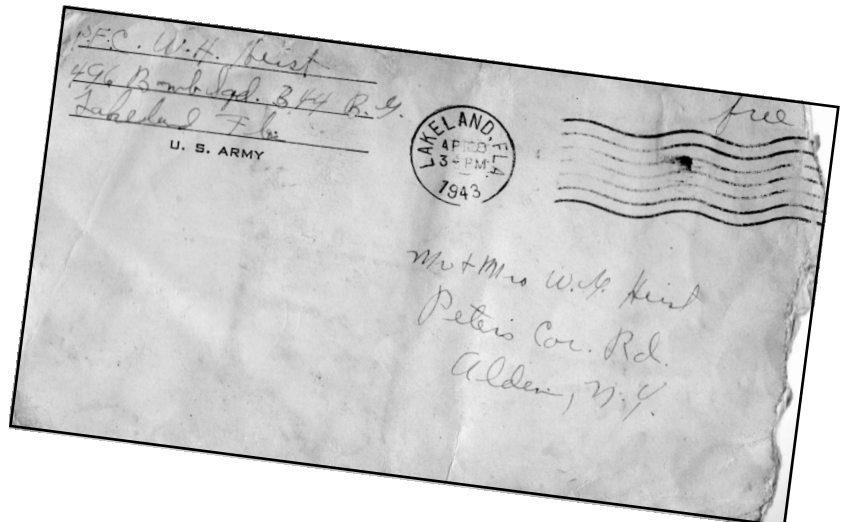 P.F.C. W.H. Heist
496 Bomb. Sqd. 344 B. G.
Lakeland Fla.
U. S. ARMY
LAKELAND, FLA.
3 - PM
1943
free
Mr + Mrs W. H. Heist
Peters Cor. Rd.
Alden, N.Y.